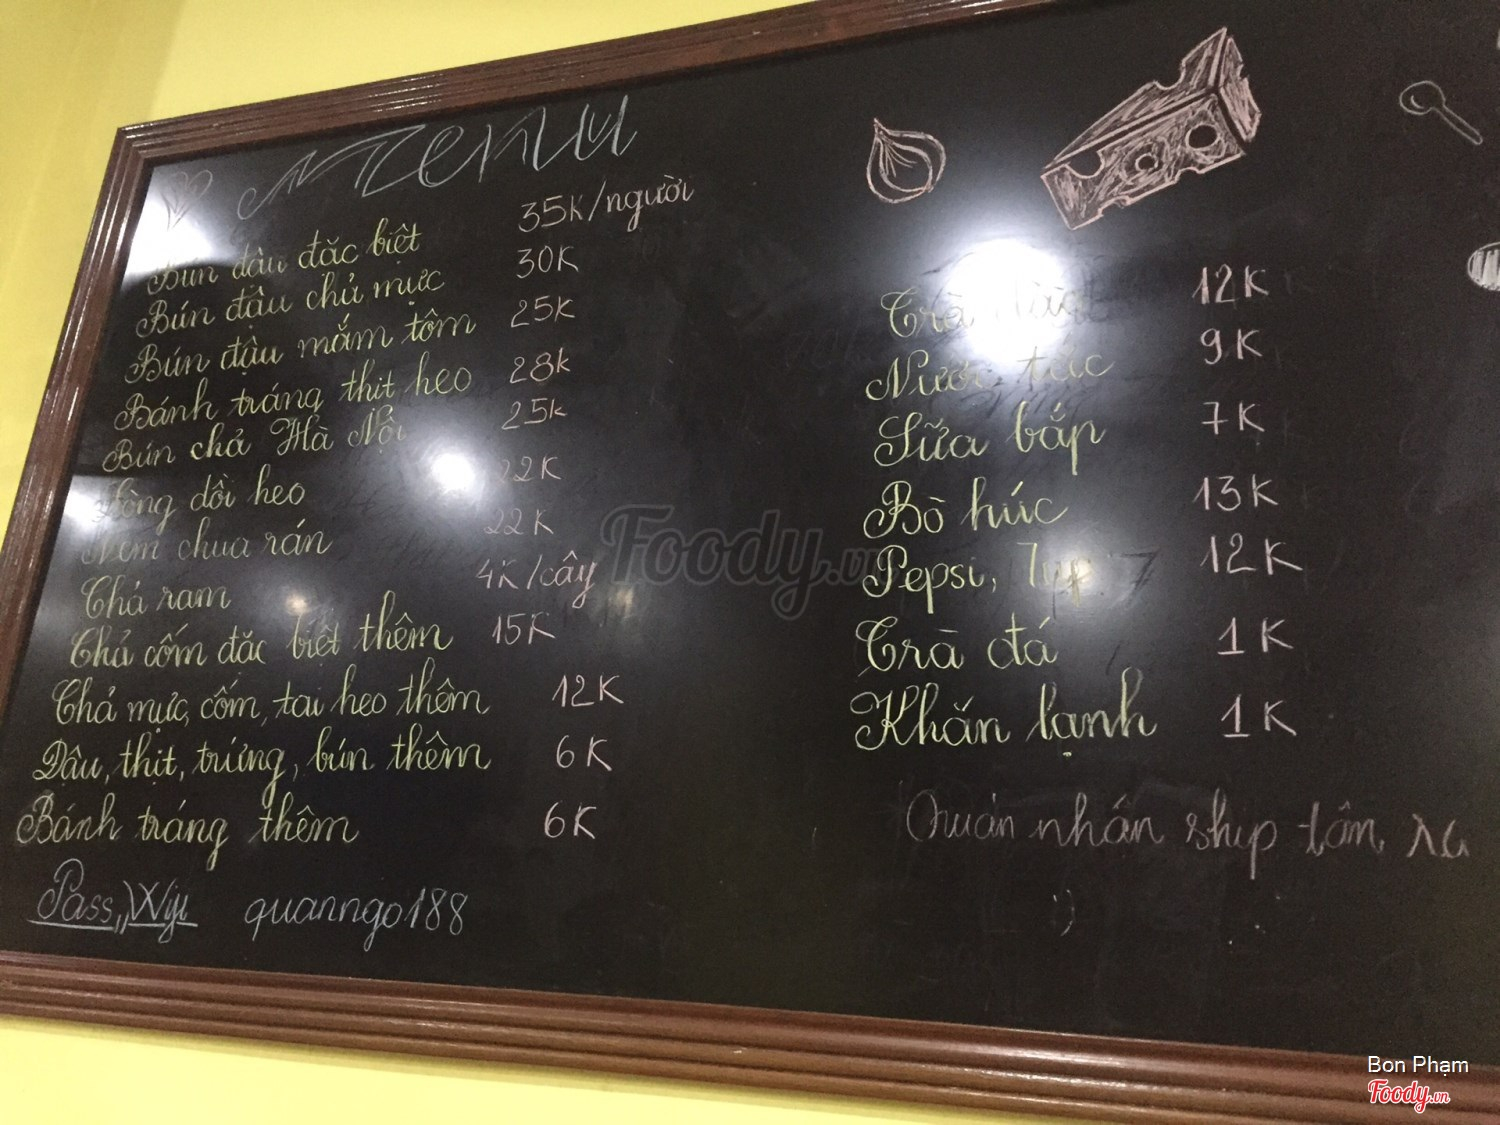 Menu
Bún đậu đặc biệt 35K/người
Bún đậu chả mực 30K
Bún đậu mắm tôm 25K
Bánh tráng thịt heo 28k
Bún chả Hà Nội 25k
Lòng dồi heo 22K
Nem chua rán 22K
Chả ram 4K/cây
Chả cốm đặc biệt thêm 15K
Chả mực, cốm, tai heo thêm 12K
Đậu, thịt, trứng, bún thêm 6K
Bánh tráng thêm 6K
Pass Wifi quanngo188
Trà 12K
Nước tắc 9K
Sữa bắp 7K
Bò húc 13K
Pepsi, 7up 12K
Trà đá 1K
Khăn lạnh 1K
Quán nhận ship tận
:)
Foody.vn
Bon Phạm
Foody.vn